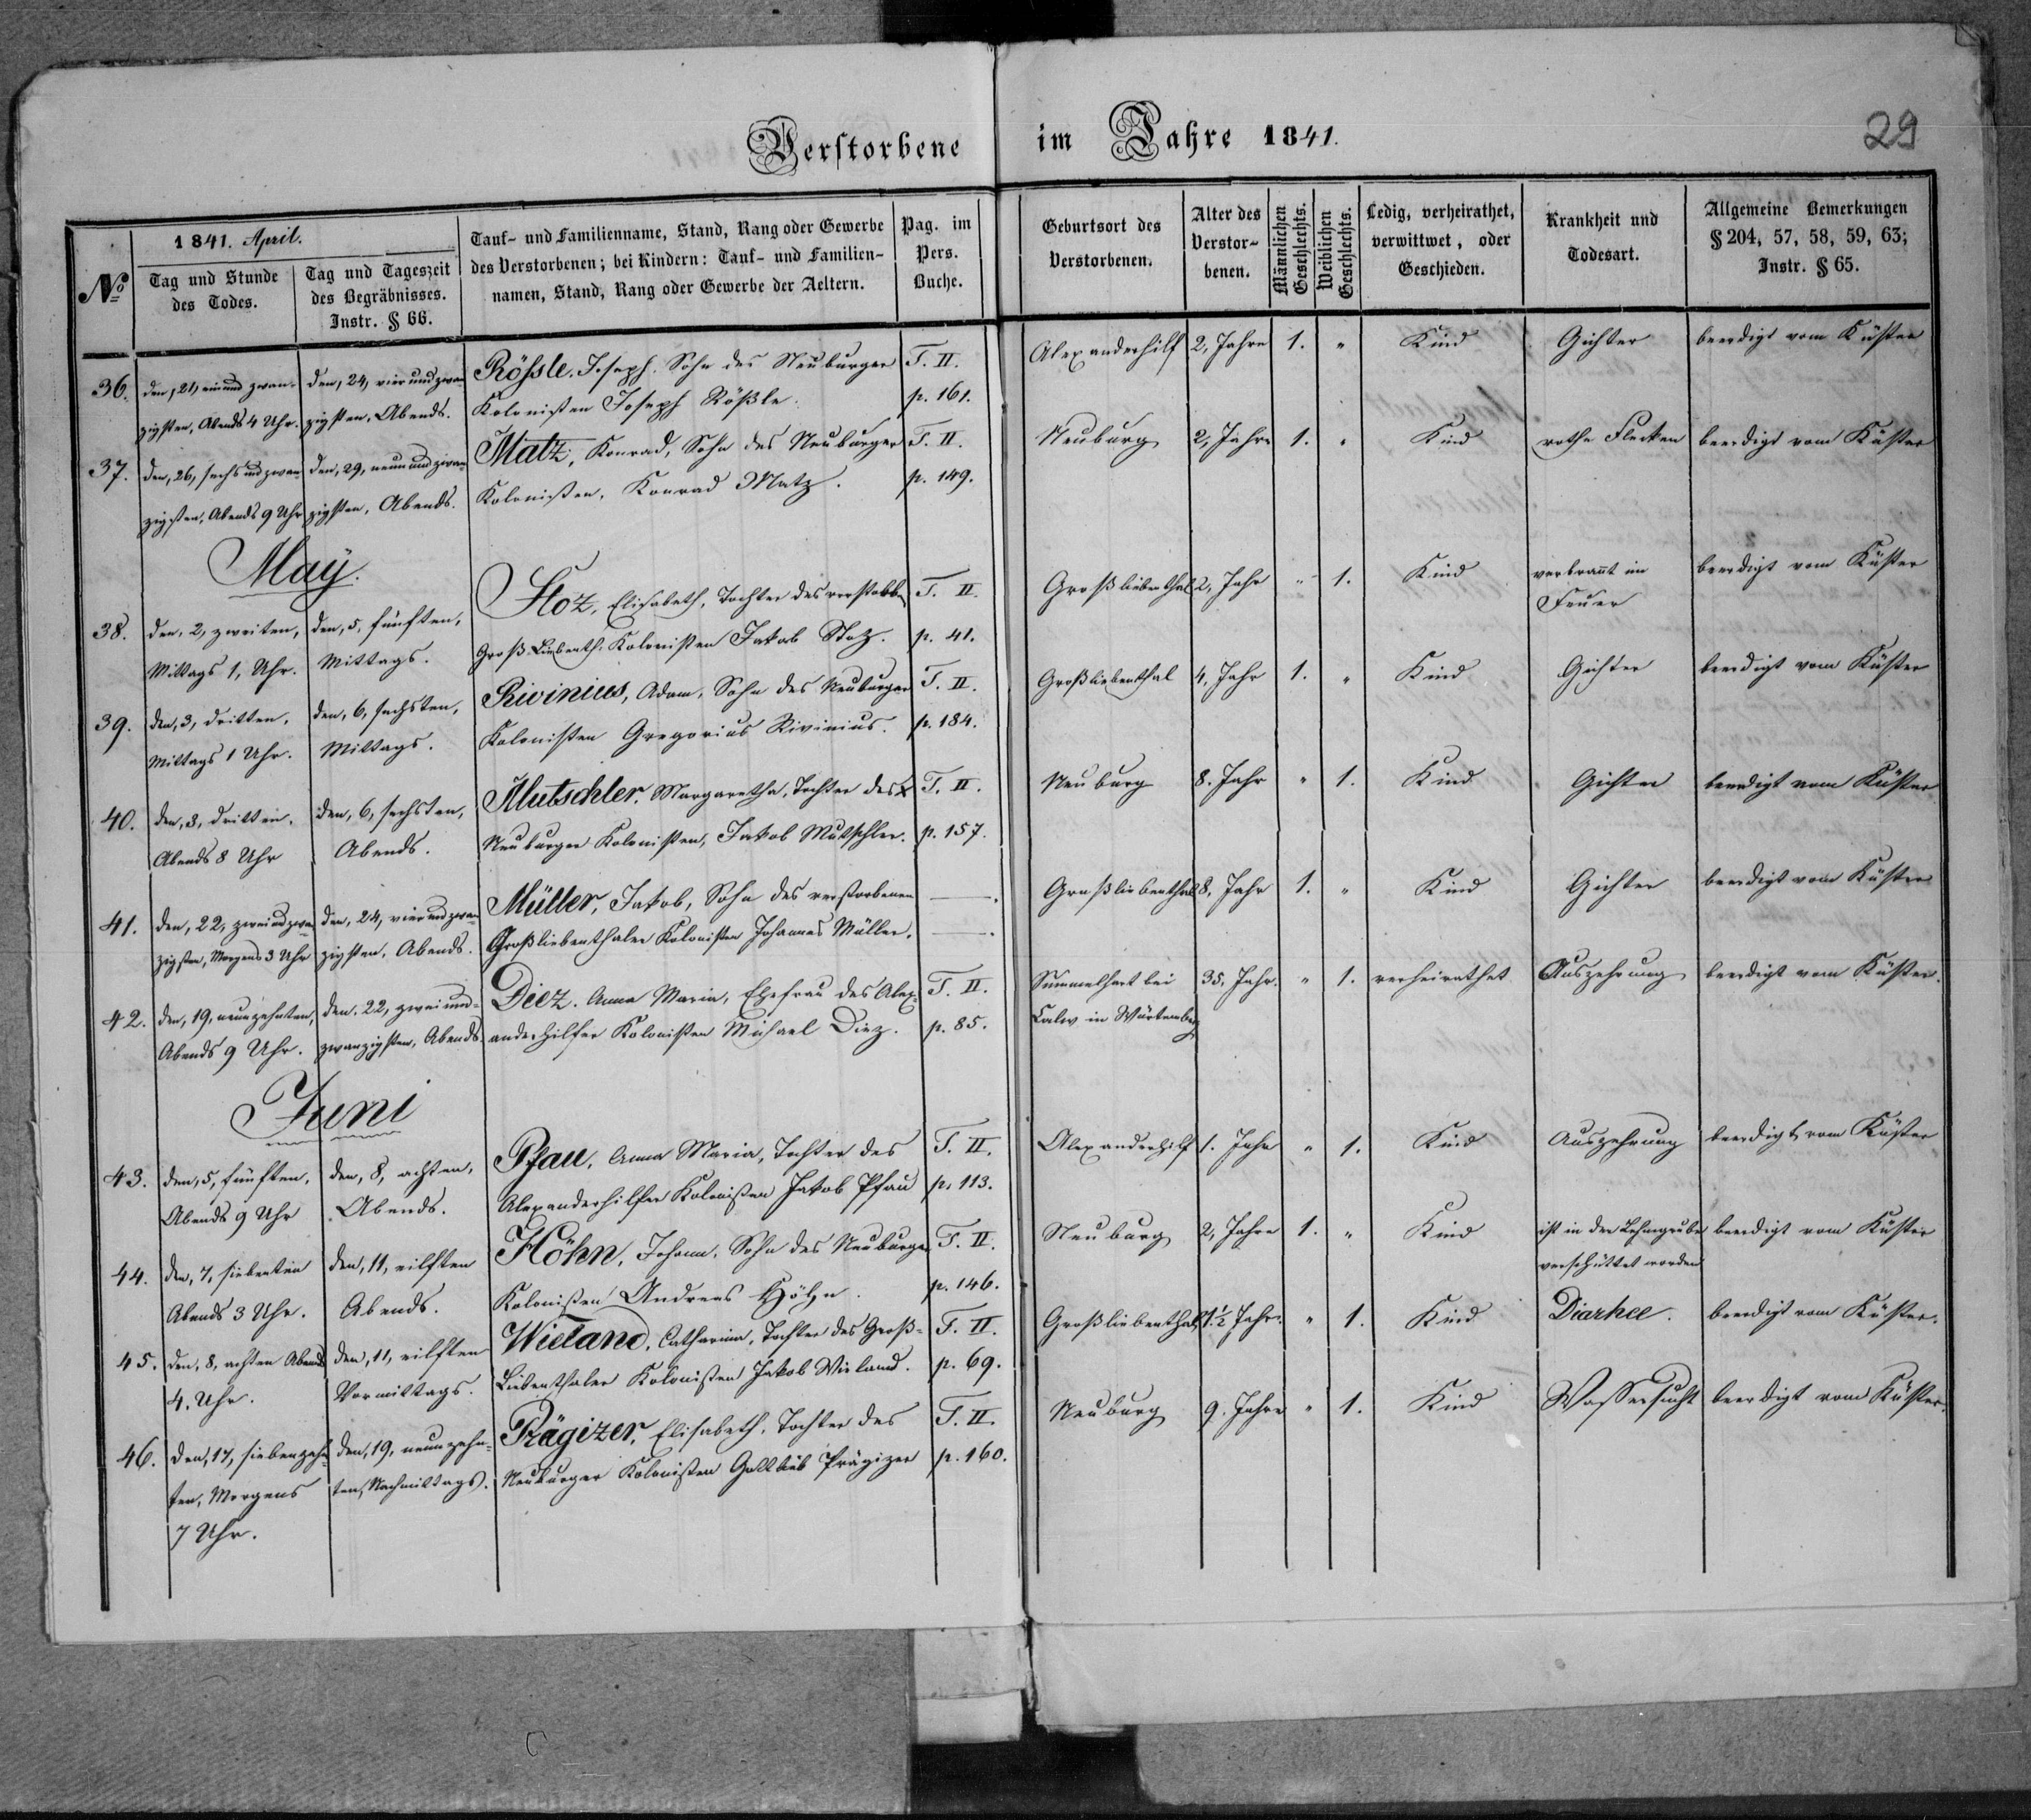 Verstorbene im Jahre 1841.
29
1841. April.
№
Tag und Stunde des Todes.
Tag und Tageszeit des Begräbnisses. Instr. § 66.
Tauf- und Familienname, Stand, Rang oder Gewerbe
des Verstorbenen; bei Kindern: Tauf- und Familien-
namen, Stand, Rang oder Gewerbe der Aeltern.
Pag. im Pers. Buche.
Geburtsort des Verstorbenen.
Alter des Verstor- benen.
Männlichen Geschlechts.
Weiblichen Geschlechts.
Ledig, verheirathet, verwittwet, oder Geschieden.
Krankheit und Todesart.
Allgemeine Bemerkungen
§ 204, 57, 58, 59, 63;
Instr. § 65.
36. den, 21, einund zwan- den, 24, vier und zwan Rößle. Joseph. Sohn des Neuburger T. II. Alexanderhilf 2, Jahre 1. " Kind Gichter beerdigt vom Küster
zigsten, Abends 4 Uhr. zigsten, Abends. Kolonisten Joseph Rößle. p. 161.
37. den, 26, sechs und zwan- den, 29, neun und zwan- Matz, Konrad, Sohn des Neuburger T. II. Neuburg 2, Jahre 1. " Kind rothe Flecken beerdigt vom Küster
zigsten, Abends 9 Uhr zigsten, Abends. Kolonisten, Konrad Matz. p. 149.
May.
38. den, 2, zweiten, den, 5, fünften, Stoz, Elisabeth, Tochter des verstorbn T. II. Großliebenthal 2, Jahr " 1. Kind verbrannt im beerdigt vom Küster
Feuer
Mittags 1, Uhr. Mittags. Groß-Liebenth. Kolonisten Jakob Stoz. p. 41.
39. den, 3, dritten, den, 6, sechsten, Rivinius, Adam, Sohn des Neuburger T. II. Großliebenthal 4, Jahr 1. " Kind Gichter beerdigt vom Küster
Mittags 1 Uhr. Mittags. Kolonisten Gregorius Rivinius. p. 184.
40. den, 3, dritten, den, 6, sechsten, Mutschler, Margaretha, Tochter des T. II. Neuburg 8. Jahr " 1. Kind Gichter beerdigt vom Küster
Abends 8 Uhr Abends. Neuburger Kolonisten, Jakob Mutschler. p. 157.
41. den, 22, zweiundzwan den, 24, vier und zwan Müller, Jakob, Sohn des verstorbenen —. Großliebenthal 8, Jahr 1. " Kind Gichter beerdigt vom Küster
zigsten, Morgens 3 Uhr zigsten, Abends. Großliebenthaler Kolonisten Johannes Müller. —.
42. den, 19, neunzehnten, den. 22, zwei und- Diez. Anna Maria, Ehefrau des Alex- T. II. Summelhart bei 35, Jahr. " 1. verheirathet Auszehrung beerdigt vom Küster.
Abends 9 Uhr. zwanzigsten, Abends anderhilfer Kolonisten Michael Diez. p. 85. Calw in Würtemberg
Juni
43. den, 5, fünften, den, 8, achten, Pfau, Anna Maria, Tochter des T. II. Alexanderhilf 1. Jahr " 1. Kind Auszehrung beerdigt vom Küster
Abends 9 Uhr Abends. Alexanderhilfer Kolonisten Jakob Pfau p. 113.
44. den, 7, siebenten den, 11, eilften Höhn, Johann, Sohn des Neuburger T. II. Neuburg 2, Jahre 1. " Kind ist in der Lehmgrube beerdigt vom Küster
verschüttet worden
Abends 3 Uhr. Abends. Kolonisten Andreas Höhn. p. 146.
45. den, 8, achten Abends den, 11, eilften Wieland, Catharina, Tochter des Groß- T. II. Großliebenthal 1½ Jahr. " 1. Kind Diarhee. beerdigt vom Küster.
4. Uhr. Vormittags. Liebenthaler Kolonisten Jakob Wieland. p. 69.
46. den, 17, siebenzehn- den, 19, neunzehn- Prägizer, Elisabeth, Tochter des T. II. Neuburg 9. Jahre " 1. Kind Wassersucht beerdigt vom Küster.
ten, Morgens ten, Nachmittags. Neuburger Kolonisten Gottlieb Prägizer p. 160.
7 Uhr.